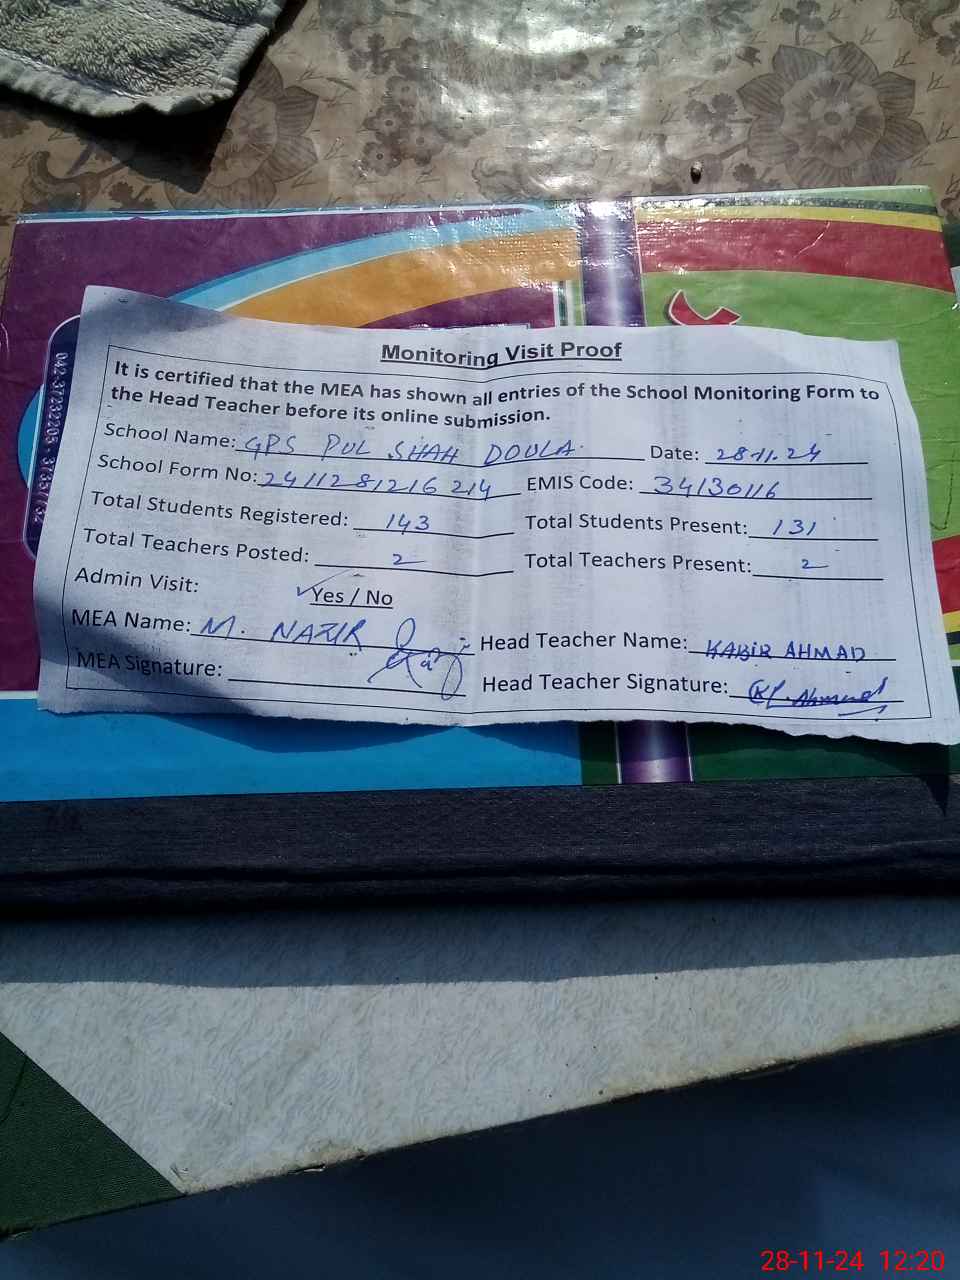 Monitoring Visit Proof
It is certified that the MEA has shown all entries of the School Monitoring Form to
the Head Teacher before its online submission.
School Name: GPS PUL SHAH DOULA. Date: 28.11.24
School Form No: 2411281216 214 EMIS Code: 34130116
Total Students Registered: 143 Total Students Present: 131
Total Teachers Posted: 2 Total Teachers Present: 2
Admin Visit: Yes / No
MEA Name: M. NAZIR Head Teacher Name: KABIR AHMAD
MEA Signature: Head Teacher Signature:
28-11-24 12:20